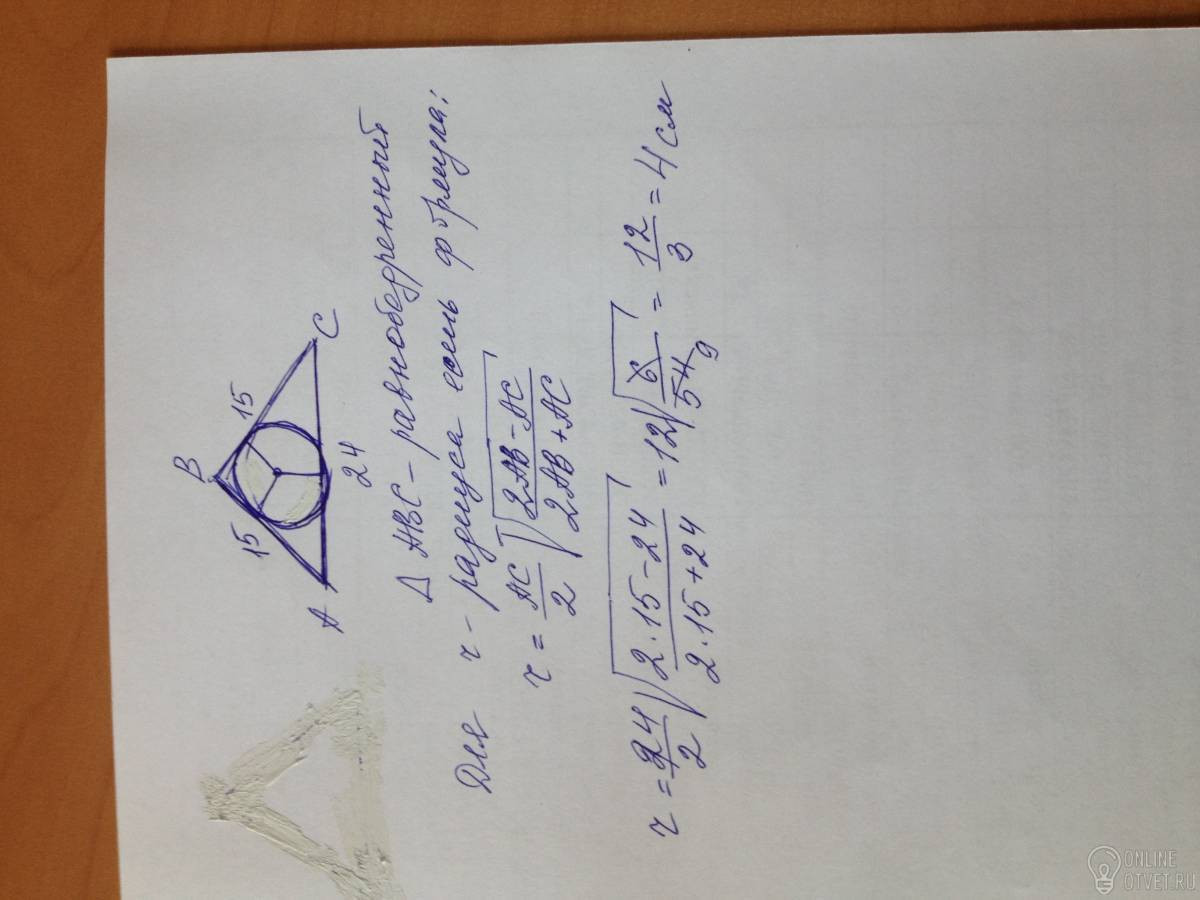 B
15 15
A 24 C
Δ ABC - равнобедренный
Для r - радиуса есть формула:
r = AC/2 √(2AB - AC)/(2AB + AC)
r = 24/2 √(2·15 - 24)/(2·15 + 24) = 12√6/54 9 = 12/3 = 4 см
ONLINE
OTVET.RU